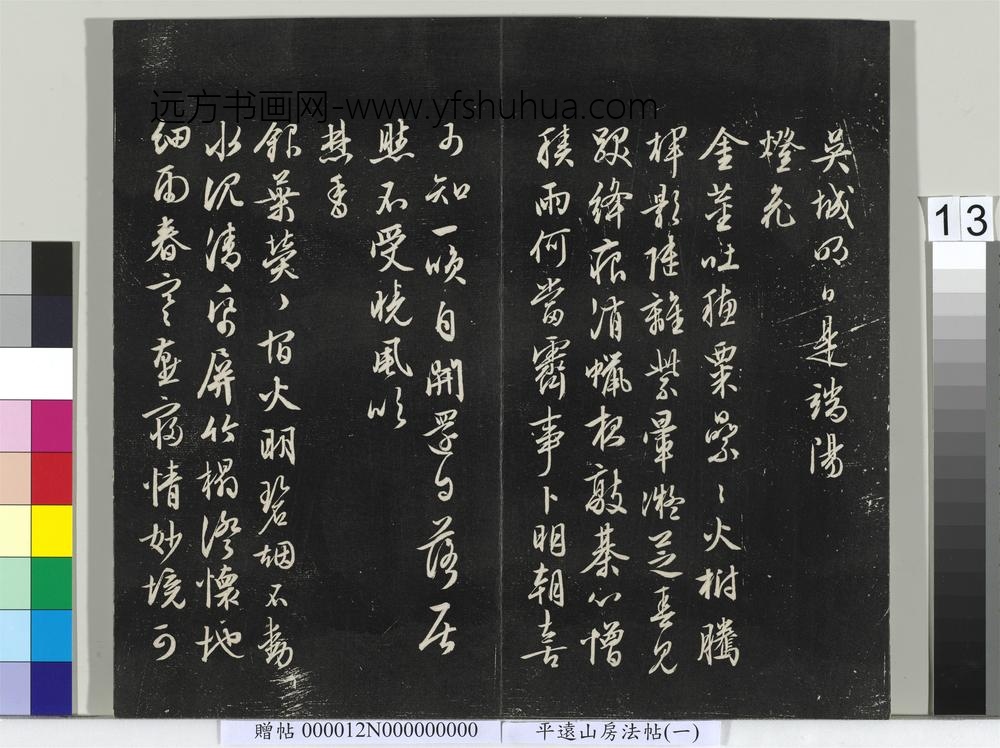 吳城明日是端陽
燈花
金莖吐穗粟纍〻火樹騰
揮影陸離紫暈凝芝見
跋絳痕消蠟敲棊心憎
積雨何當霽事卜明朝喜
可知一頃自開還自落居
然不受曉風吹
焚香
銀葉熒〻宿火明碧烟不動
水沉清帋屏竹榻澄懷地
細雨春寒燕寢情妙境可
远方书画网-www.yfshuhua.com
13
贈帖 000012N000000000
平遠山房法帖(一)